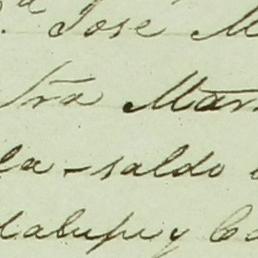 José M
tra Mar
la - saldo
dalupe y Ca